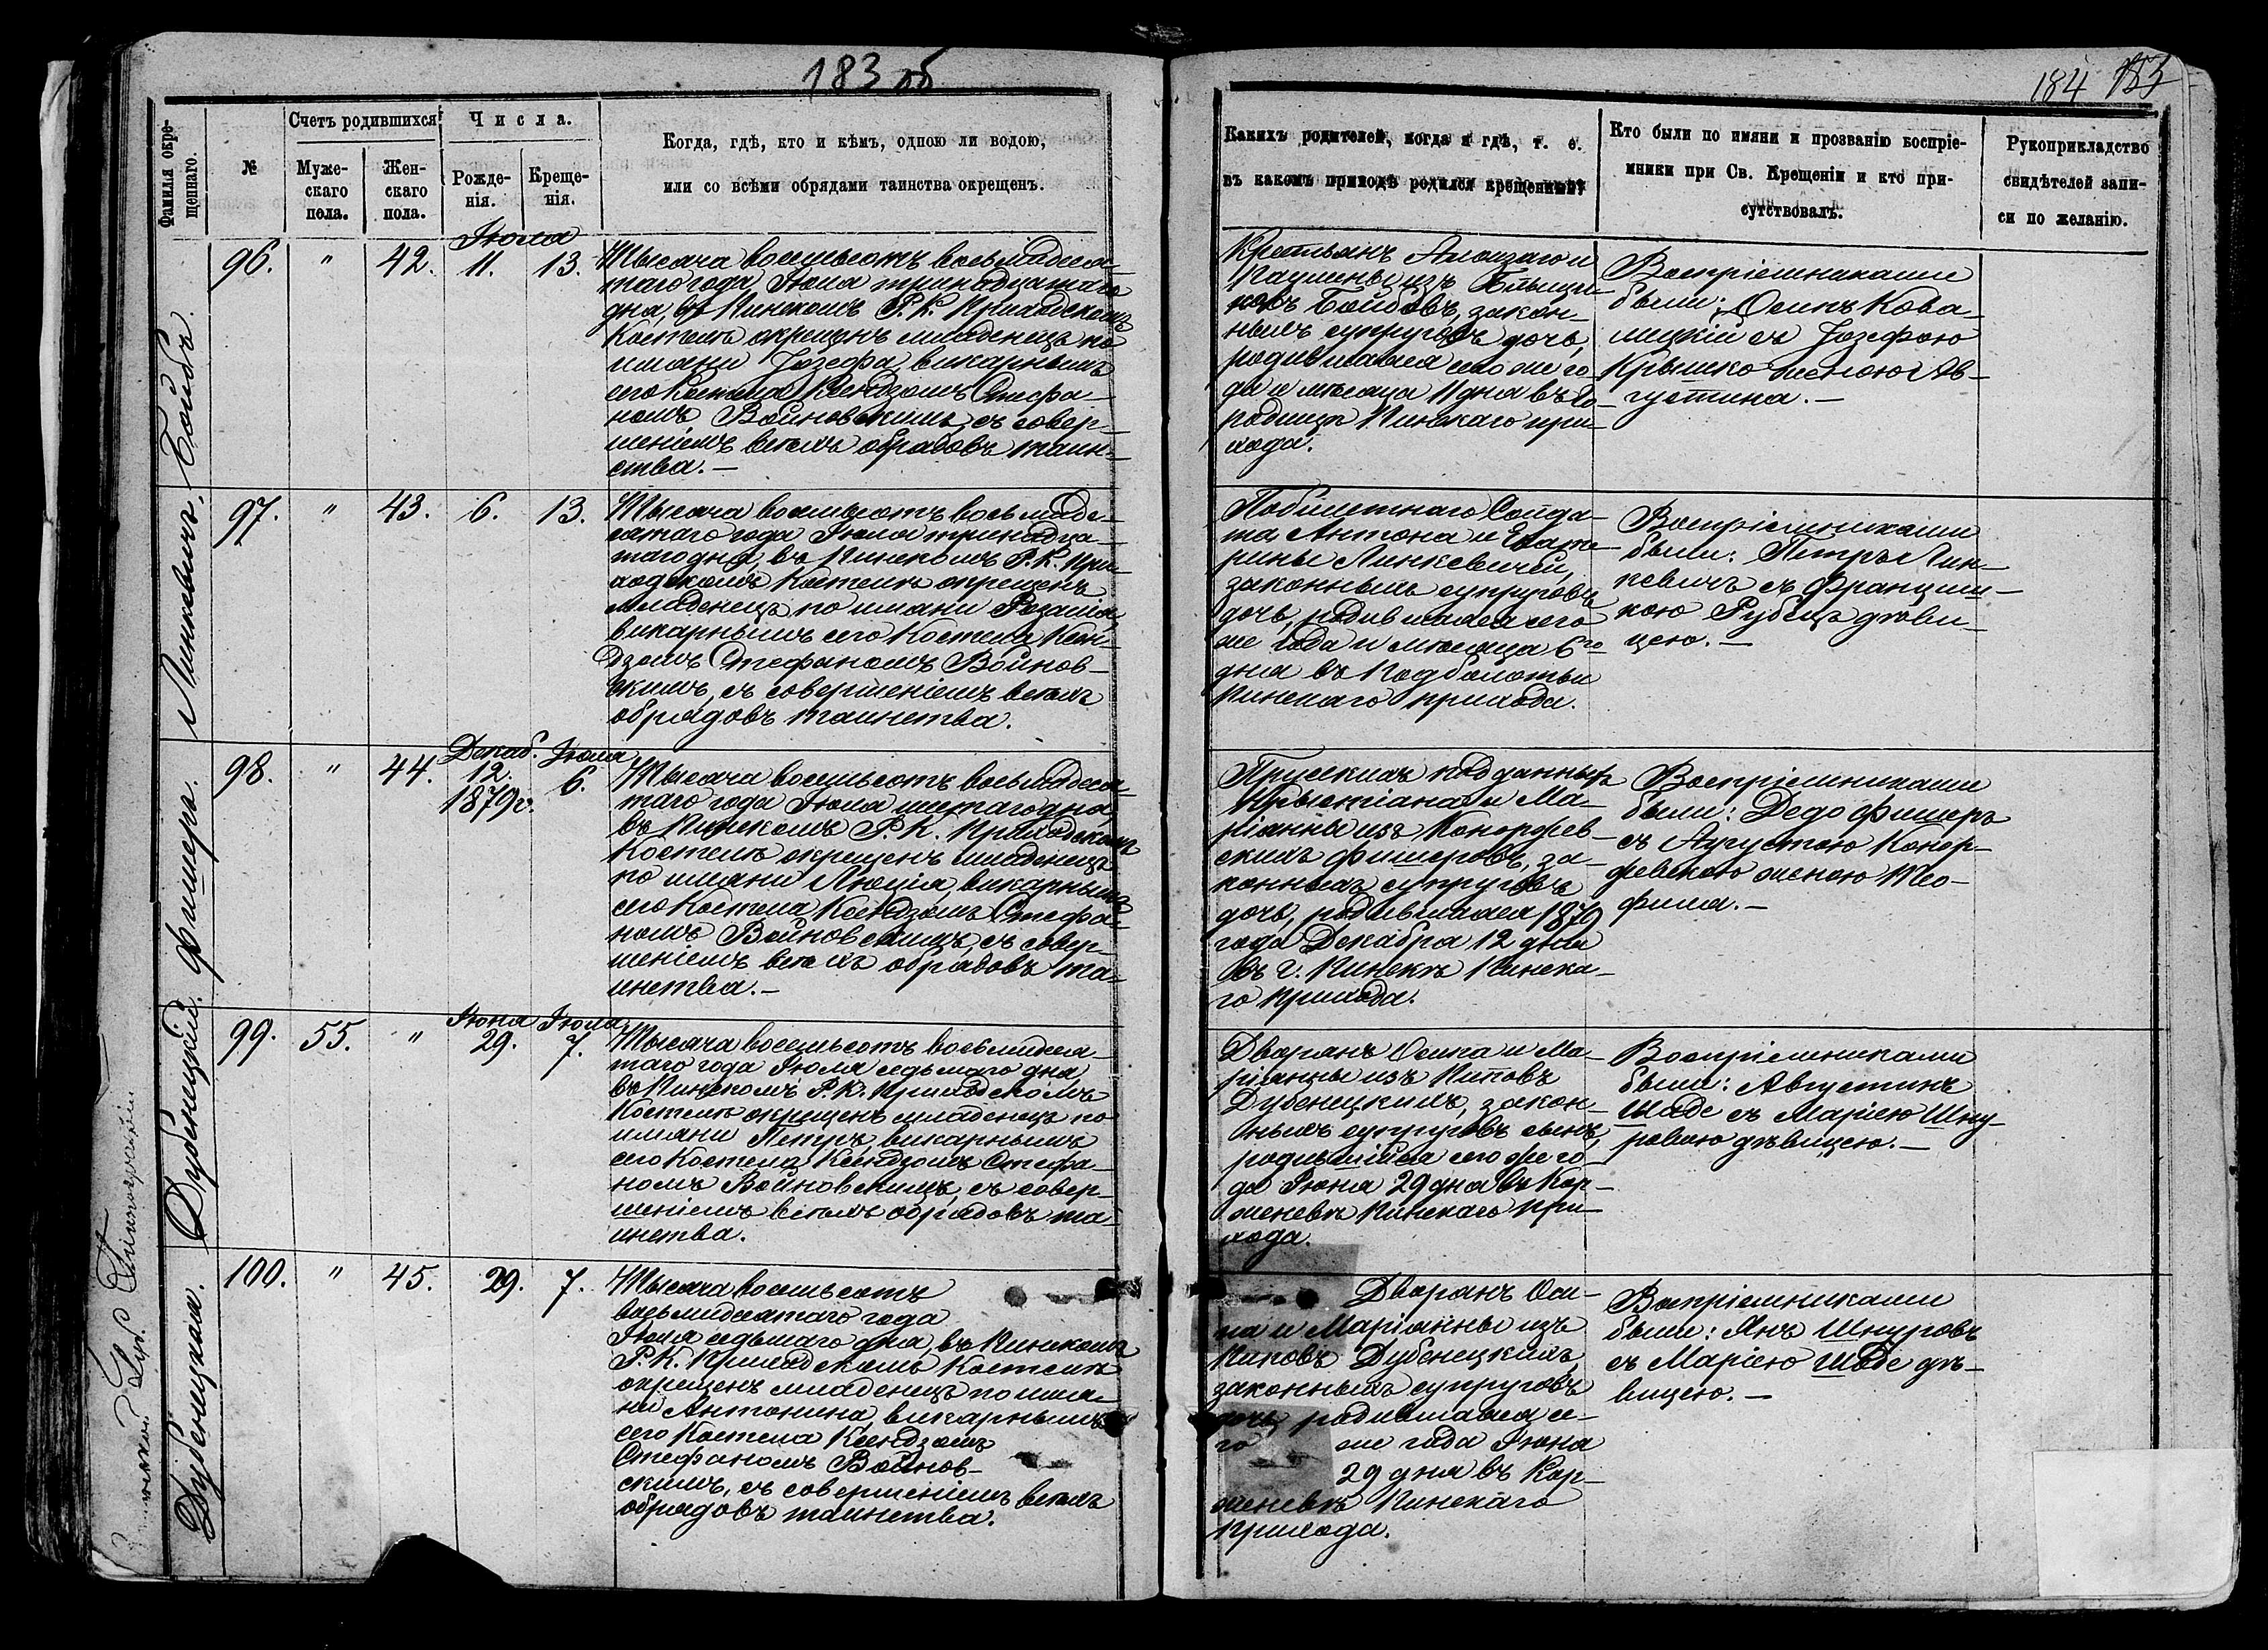 183 об
184 183
Фамилія окре-
щеннаго.
№
Счетъ родившихся
Муже-
скаго
пола.
Жен-
скаго
пола.
Числа.
Рожде-
нія.
Креще-
нія.
Когда, гдѣ, кто и кѣмъ, одною ли водою,
или со всѣми обрядами таинства окрещенъ.
Какихъ родителей, когда и гдѣ, т. е.
въ какомъ приходѣ родился крещенный?
Кто были по имяни и прозванію воспріе-
мники при Св. Крещеніи и кто при-
сутствовалъ.
Рукоприкладство
свидѣтелей запи-
си по желанію.
Бойбъ.
96. " 42.
Іюля
11. 13.
Тысяча восемьсотъ восьмидеся-
таго года Іюля тринадцатаго
дня, въ Пинскомъ Р. К. Приходскомъ
Костелѣ окрещенъ младенецъ по
имяни Іозефа, викарнымъ
сего Костела Ксендзомъ Стефа-
номъ Войновскимъ, съ совер-
шеніемъ всѣхъ обрядовъ таин-
ства. —
Крестьянъ
Паулины изъ
Бойбовъ, закон-
ныхъ супруговъ дочь,
родившаяся сего же го-
да и мѣсяца 11 дня въ Го-
родищѣ Пинскаго при-
хода.
Воспріемниками
были: Осипъ Кова-
лицкій съ Іозефою
Крышко женою Ав-
густина. —
Линкевичъ.
97. " 43. 6. 13.
Тысяча восемьсотъ восьмиде-
сятаго года Іюля тринадца-
таго дня, въ Пинскомъ Р. К. При-
ходскомъ Костелѣ окрещенъ
младенецъ по имяни Розалія
викарнымъ сего Костела Ксен-
дзомъ Стефаномъ Войнов-
скимъ, съ совершеніемъ всѣхъ
обрядовъ таинства.
Побилетнаго Солда-
та Антона и Екате-
рины Линкевичей,
законныхъ супруговъ
дочь, родившаяся сего
же года и мѣсяца 6го
дня въ Подболотьи
Пинскаго прихода.
Воспріемниками
были: Петръ Лин-
кевичъ съ Францишк-
кою Рубецъ дѣви-
цею. —
Фишеръ.
98. " 44.
Декаб.
12.
1879г.
Іюля
6.
Тысяча восемьсотъ восьмидеся-
таго года Іюля шестаго дня,
въ Пинскомъ Р. К. Приходскомъ
Костелѣ окрещенъ младенецъ
по имяни Люція, викарнымъ
сего Костела Ксендзомъ Стефа-
номъ Войновскимъ, съ совер-
шеніемъ всѣхъ обрядовъ та-
инства. —
Прусскихъ подданныхъ
Крыстіана и Ма-
ріанны изъ Конорфев-
скихъ Фишеровъ, за-
конныхъ супруговъ
дочь, родившаяся 1879
года Декабря 12 дня
въ г. Пинскѣ Пинска-
го прихода.
Воспріемниками
были: Дедо Фишеръ
съ Аугустою Конор-
февскою женою Тео-
фила. —
Дубенецкій.
99. 55. "
Іюня
29.
Іюля
7.
Тысяча восемьсотъ восьмидеся-
таго года Іюля седьмаго дня
въ Пинскомъ Р. К. Приходскомъ
Костелѣ окрещенъ младенецъ по
имяни Петръ, викарнымъ
сего Костела Ксендзомъ Стефа-
номъ Войновскимъ, съ совер-
шеніемъ всѣхъ обрядовъ та-
инства.
Дворянъ Осипа и Ма-
ріанны изъ Киповъ
Дубенецкихъ, закон-
ныхъ супруговъ сынъ,
родившійся сего же го-
да Іюня 29 дня въ Кор-
женевѣ Пинскаго при-
хода.
Воспріемниками
были: Августинъ
Шаде съ Маріею Шну-
ровою дѣвицею. —
Дубенецкая.
100. " 45. 29. 7.
Тысяча восемьсотъ
восьмидесятаго года
Іюля седьмаго дня, въ Пинскомъ
Р. К. Приходскомъ Костелѣ
окрещенъ младенецъ по имя-
ни Антонина, викарнымъ
сего Костела Ксендзомъ
Стефаномъ Войнов-
скимъ, съ совершеніемъ всѣхъ
обрядовъ таинства.
Дворянъ Оси-
па и Маріанны изъ
Киповъ Дубенецкихъ,
законныхъ супруговъ
дочь, родившаяся се-
го же года Іюня
29 дня въ Кор-
женевѣ Пинскаго
прихода.
Воспріемниками
были: Янъ Шнуровъ
съ Маріею Шаде дѣ-
вицею. —